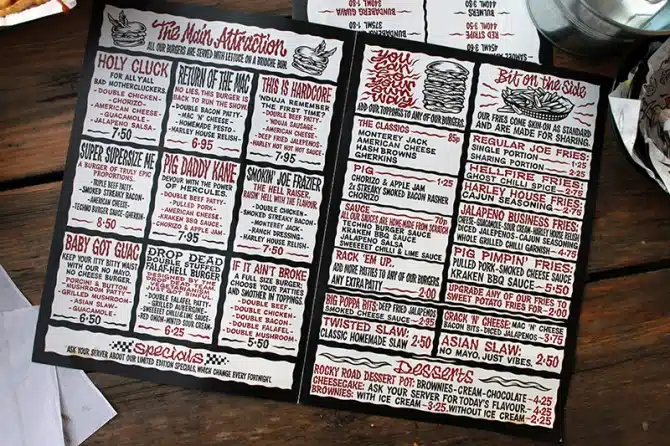 The Main Attraction
ALL OUR BURGERS ARE SERVED WITH LETTUCE ON A BRIOCHE BUN.
HOLY CLUCK
FOR ALL Y'ALL
BAD MOTHERCLUCKERS.
- DOUBLE CHICKEN -
- CHORIZO -
- AMERICAN CHEESE -
- GUACAMOLE -
- JALAPENO SALSA -
7-50
RETURN OF THE MAC
NO LIES, THIS BURGER IS
BACK TO RUN THE SHOW.
- DOUBLE BACON PATTY -
- MAC 'N' CHEESE -
- HOMEMADE PESTO -
- HARLEY HOUSE RELISH -
6-95
THIS IS HARDCORE
'NDUJA REMEMBER
THE FIRST TIME?
- DOUBLE BEEF PATTY -
- 'NDUJA SAUSAGE -
- AMERICAN CHEESE -
- DEEP FRIED JALAPENOS -
- HARLEY HOT HOT HOT SAUCE -
7-95
SUPER SUPERSIZE ME
A BURGER OF TRULY EPIC
PROPORTIONS.
- TRIPLE BEEF PATTY -
- SMOKED STREAKY BACON -
- AMERICAN CHEESE -
- TECHNO BURGER SAUCE - GHERKIN -
8-50
PIG DADDY KANE
DEVOUR WITH THE POWER
OF HERCULES.
- DOUBLE BEEF PATTY -
- PULLED PORK -
- AMERICAN CHEESE -
- KRAKEN BBQ SAUCE -
- CHORIZO & APPLE JAM -
7-95
SMOKIN' JOE FRAZIER
THE HELL RAISER
RAISIN' HELL WITH THE FLAVOUR.
- DOUBLE CHICKEN -
- SMOKED STREAKY BACON -
- MONTEREY JACK -
- RANCH DRESSING -
- HARLEY HOUSE RELISH -
7-50
BABY GOT GUAC
KEEP YOUR ITTY BITTY MUST
WITH OUR NO MAYO,
NO CHEESE BURGER.
- PORCINI & BUTTON -
- MUSHROOM PATTY -
- GRILLED MUSHROOM -
- ASIAN SLAW -
- GUACAMOLE -
6-50
DROP DEAD
DOUBLE STUFFED
FALAF-HELL BURGER
- DOUBLE FALAFEL PATTY -
- GRILLED AUBERGINE -
- SWEEEET CHILLI & LIME SAUCE -
- RED ONION - MINTED SOUR CREAM -
6-25
IF IT AIN'T BROKE
A FULL SIZE BURGER;
CHOOSE YOUR PATTIES
AND SMOTHER IN TOPPINGS.
- DOUBLE BEEF -
- DOUBLE CHICKEN -
- DOUBLE BACON -
- DOUBLE FALAFEL -
- DOUBLE MUSHROOM -
5-50
Specials
ASK YOUR SERVER ABOUT OUR LIMITED EDITION SPECIALS, WHICH CHANGE EVERY FORTNIGHT.
ADD THESE TOPPINGS TO ANY OF OUR BURGERS
THE CLASSICS 85p
MONTEREY JACK
AMERICAN CHEESE
HASH BROWNS
GHERKINS
PIG 1-25
CHORIZO & APPLE JAM
2x STREAKY SMOKED BACON RASHER
CHORIZO
SAUCE 70p
ALL OUR SAUCES ARE HOME-MADE FROM SCRATCH
TECHNO BURGER SAUCE
KRAKEN BBQ SAUCE
JALAPENO SALSA
SWEEEEET CHILLI & LIME SAUCE
RACK 'EM UP..
ADD MORE PATTIES TO ANY OF OUR BURGERS
ANY EXTRA PATTY 2-00
BIG POPPA BITS: DEEP FRIED JALAPENOS
SMOKED CHEESE SAUCE 2-95
TWISTED SLAW:
CLASSIC HOMEMADE SLAW 2-50
Bit on the Side
OUR FRIES COME SKIN-ON AS STANDARD
AND ARE MADE FOR SHARING.
REGULAR JOE FRIES:
SHARING PORTION 1-25
HELLFIRE FRIES:
GHOST CHILLI SPICE 2-75
HARLEY HOUSE FRIES:
CAJUN SEASONING 2-75
JALAPENO BUSINESS FRIES:
CHEESE - GUACAMOLE - SOUR CREAM - HARLEY HOUSE RELISH
DICED JALAPENOS - CAJUN SEASONING
WHOLE GRILLED CHILLI GARNISH 4-75
PIG PIMPIN' FRIES:
PULLED PORK - SMOKED CHEESE SAUCE
KRAKEN BBQ SAUCE 5-50
UPGRADE ANY OF OUR FRIES TO
SWEET POTATO FRIES FOR 2-00
CRACK 'N' CHEESE: MAC 'N' CHEESE
BACON BITS - DICED JALAPENOS 3-75
ASIAN SLAW:
NO MAYO, JUST VIBES. 2-50
Desserts
ROCKY ROAD DESSERT POT: BROWNIES - CREAM - CHOCOLATE 4-25
CHEESECAKE: ASK YOUR SERVER FOR TODAY'S FLAVOUR. 4-25
BROWNIES: WITH ICE CREAM 3-25. WITHOUT ICE CREAM 2-25